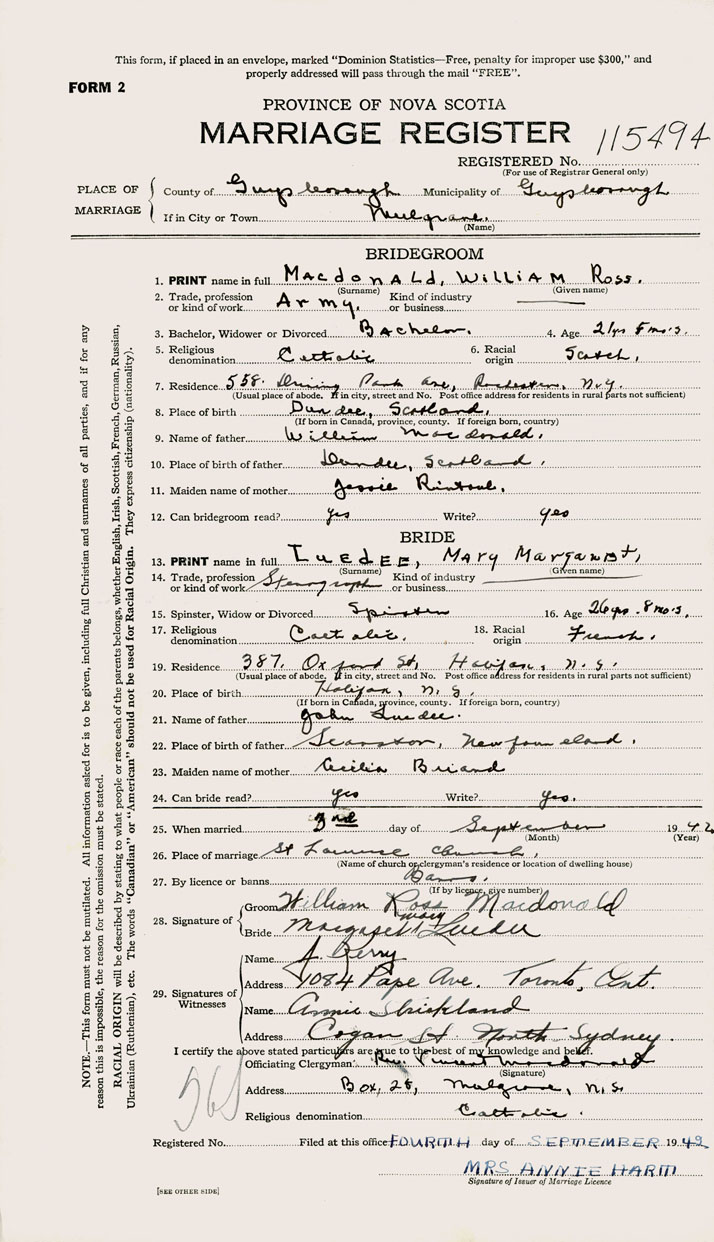 This form, if placed in an envelope, marked "Dominion Statistics—Free, penalty for improper use $300," and
properly addressed will pass through the mail "FREE".
FORM 2
PROVINCE OF NOVA SCOTIA
MARRIAGE REGISTER
115494
REGISTERED No.
(For use of Registrar General only)
PLACE OF MARRIAGE
County of Guysborough Municipality of Guysborough
If in City or Town Mulgrave.
(Name)
BRIDEGROOM
1. PRINT name in full MacdonALD, WilliAM Ross.
(Surname) (Given name)
2. Trade, profession or kind of work Army. Kind of industry or business
3. Bachelor, Widower or Divorced Bachelor. 4. Age 21 yrs 8 mo's.
5. Religious denomination Catholic 6. Racial origin Scotch,
7. Residence 558. Driving Park Ave, Rochester, N.Y.
(Usual place of abode. If in city, street and No. Post office address for residents in rural parts not sufficient)
8. Place of birth Dundee, Scotland.
(If born in Canada, province, county. If foreign born, country)
9. Name of father William Macdonald.
10. Place of birth of father Dundee, Scotland.
11. Maiden name of mother Jessie Rintoul.
12. Can bridegroom read? yes Write? yes
BRIDE
13. PRINT name in full LuEDEE, MARy MARgaret,
(Surname) (Given name)
14. Trade, profession or kind of work Stenograph Kind of industry or business
15. Spinster, Widow or Divorced Spinster 16. Age 26 yrs. 8 mo's.
17. Religious denomination Catholic. 18. Racial origin French.
19. Residence 387. Oxford St, Halifax, N.S.
(Usual place of abode. If in city, street and No. Post office address for residents in rural parts not sufficient)
20. Place of birth Halifax, N.S.
(If born in Canada, province, county. If foreign born, country)
21. Name of father John Luedee.
22. Place of birth of father Newfoundland.
23. Maiden name of mother Cecilia Briand
24. Can bride read? yes Write? yes.
25. When married 3rd day of September 1942
(Month) (Year)
26. Place of marriage St Church,
(Name of church or clergyman's residence or location of dwelling house)
27. By licence or banns Banns.
(If by licence, give number)
28. Signature of
Groom William Ross Macdonald
Bride Margaret Mary Luedee
29. Signatures of Witnesses
Name J. Berry
Address 1084 Pape Ave. Toronto, Ont.
Name Annie Strickland
Address Cogan St North Sydney.
I certify the above stated particulars are true to the best of my knowledge and belief.
Officiating Clergyman Rev. Vincent Macdonald
(Signature)
Address Box, 28, Mulgrave, N.S.
Religious denomination Catholic.
Registered No. Filed at this office FOURTH day of SEPTEMBER 1942
MRS ANNIE HART
Signature of Issuer of Marriage Licence
[SEE OTHER SIDE]
NOTE.—This form must not be mutilated. All information asked for is to be given, including full Christian and surnames of all parties, and if for any
reason this is impossible, the reason for the omission must be stated.
RACIAL ORIGIN will be described by stating to what people or race each of the parents belongs, whether English, Irish, Scottish, French, German, Russian,
Ukrainian (Ruthenian), etc. The words "Canadian" or "American" should not be used for Racial Origin. They express citizenship (nationality).